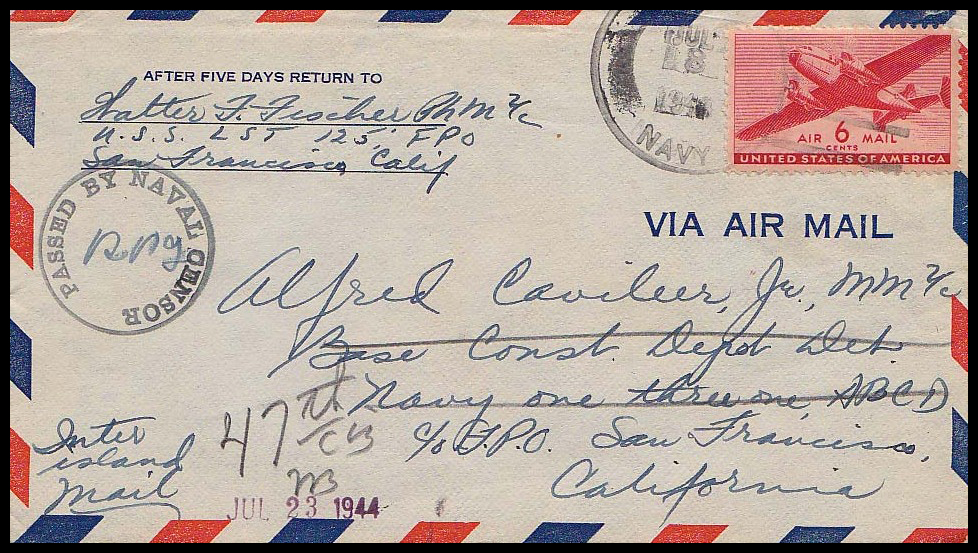 AFTER FIVE DAYS RETURN TO
Walter F. Fischer PhM 2/c
U.S.S. LST 125, FPO
San Francisco, Calif
JUL
18
194
NAVY
AIR 6 MAIL
CENTS
UNITED STATES OF AMERICA
PASSED BY NAVAL CENSOR
VIA AIR MAIL
Alfred Cavileer, Jr., MM 2/c
Base Const. Depot Det.
Navy one three one, ABCD
c/o F.P.O. San Francisco,
California
47th
CB
Inter
island
Mail
JUL 23 1944